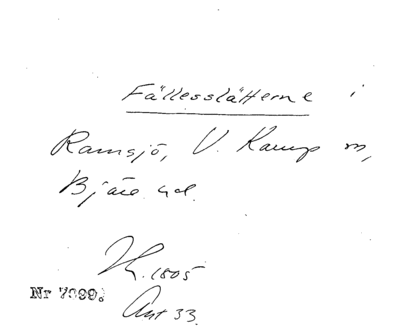 Fällesslätterne i
Ramsjö, V. Karup sn,
Bjäre hd.
1805
Nr 7099.
Ant 33.